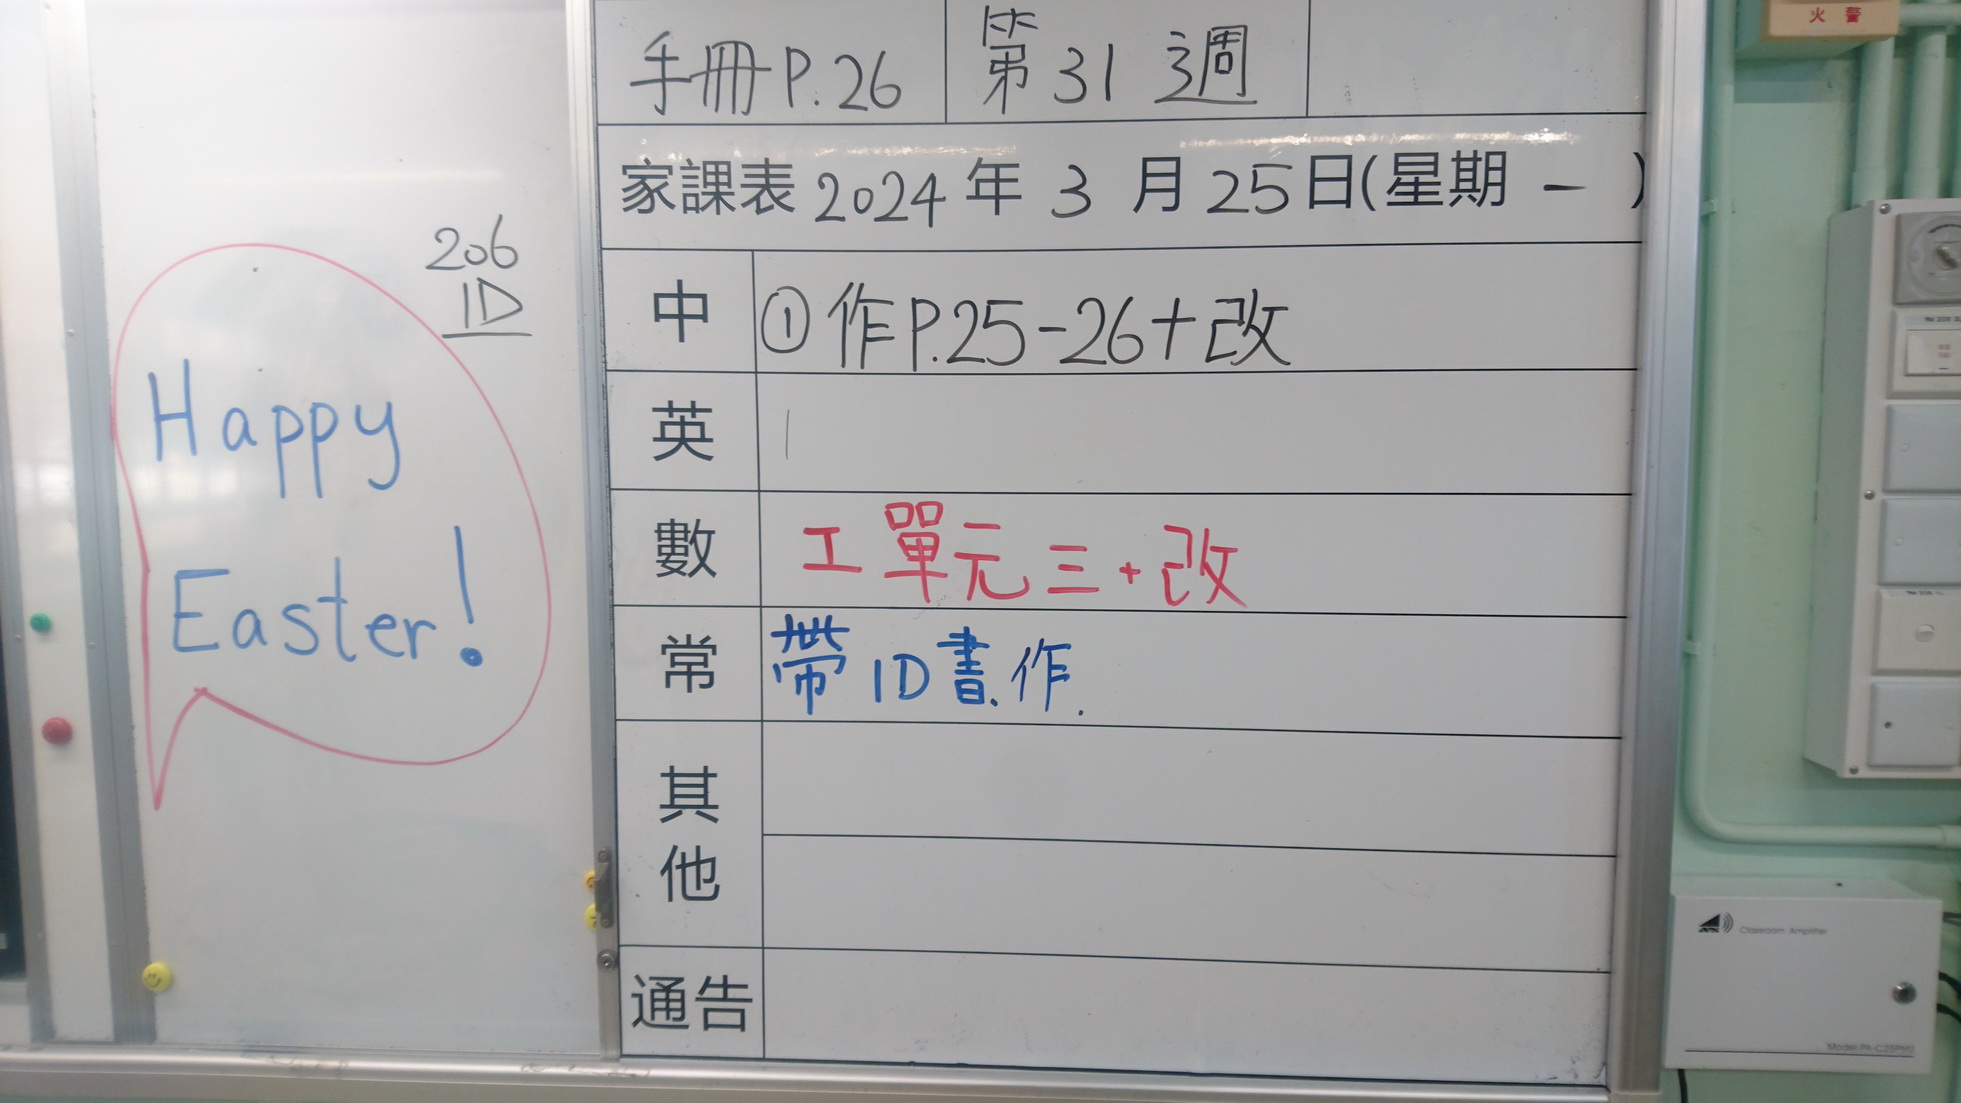 206
1D
Happy
Easter!
手冊 P.26 第 31 週
家課表 2024 年 3 月 25 日(星期 一 )
中 ① 作P.25-26+改
英
數 工 單元三+改
常 帶 1D書.作.
其他
通告
火警
Classroom Amplifier